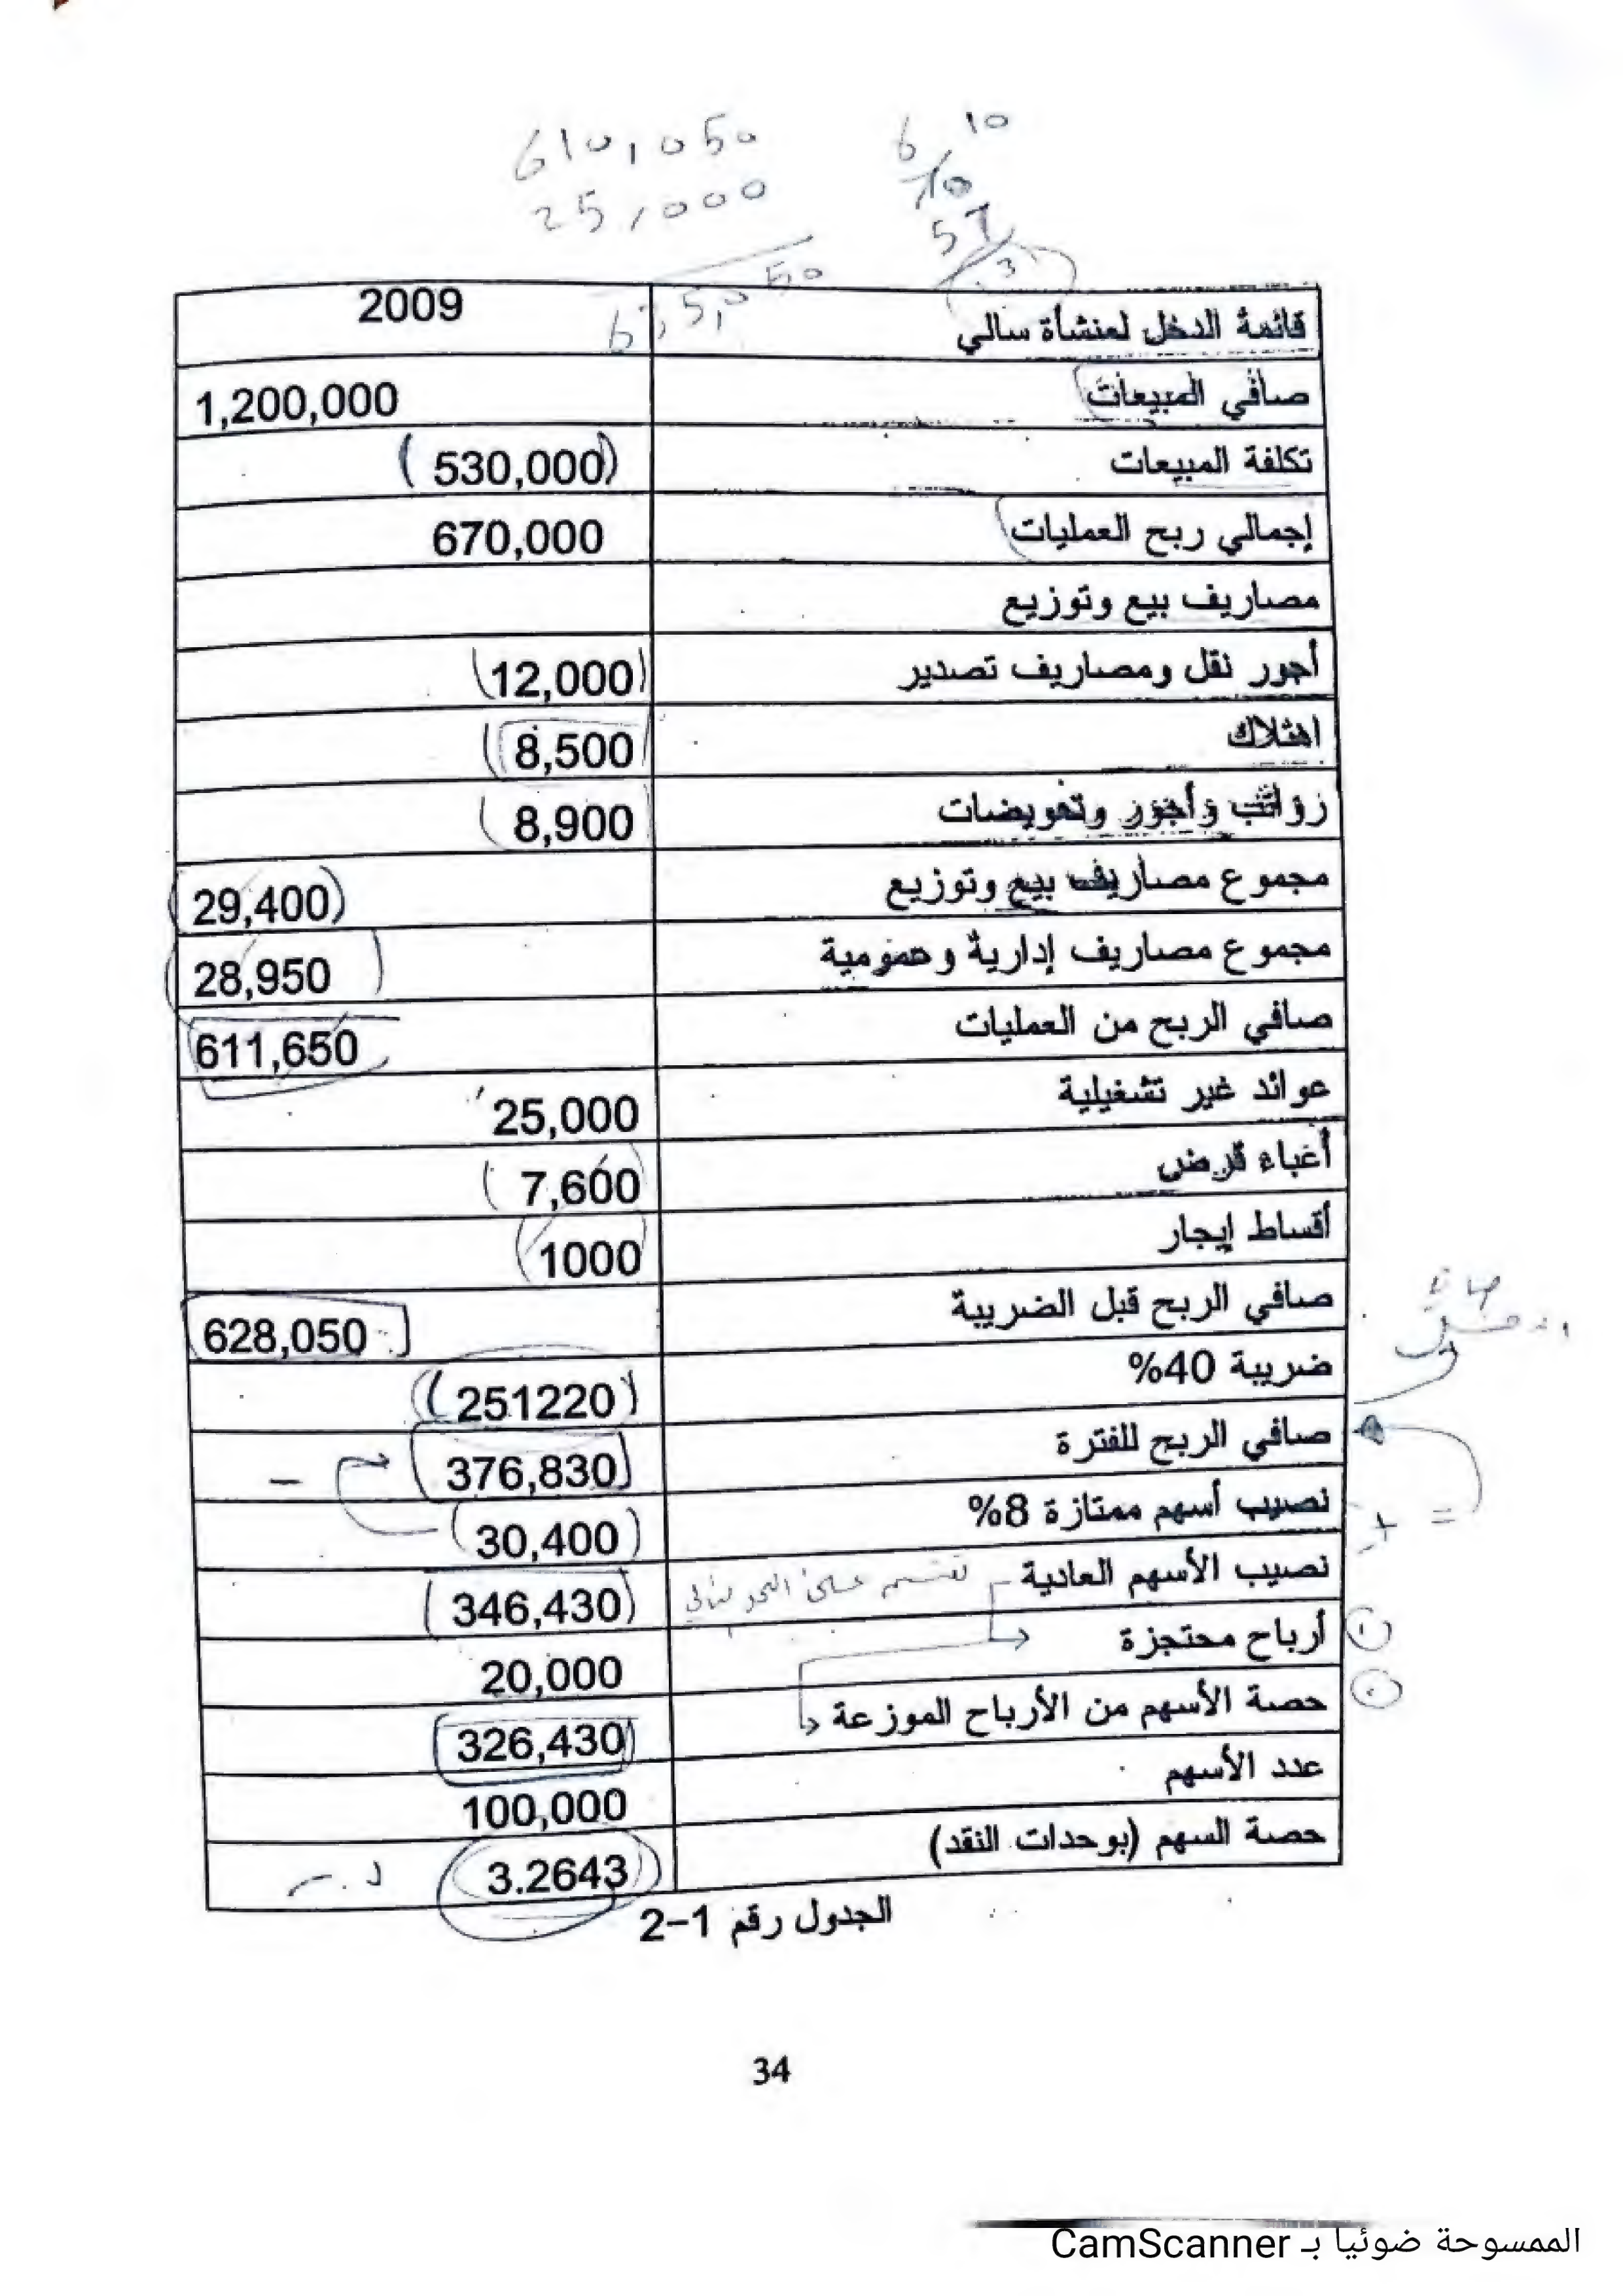 610,050
25,000
635,050
6 10
قائمة الدخل لمنشأة سالي 2009
صافي المبيعات 1,200,000
تكلفة المبيعات (530,000)
إجمالي ربح العمليات 670,000
مصاريف بيع وتوزيع
أجور نقل ومصاريف تصدير (12,000)
اهتلاك (8,500)
رواتب وأجور وتعويضات (8,900
مجموع مصاريف بيع وتوزيع (29,400)
مجموع مصاريف إدارية وعمومية (28,950)
صافي الربح من العمليات 611,650
عوائد غير تشغيلية 25,000
أعباء قرض (7,600)
أقساط إيجار (1000)
صافي الربح قبل الضريبة 628,050
ضريبة 40% (251220)
صافي الربح للفترة (376,830) –
نصيب أسهم ممتازة 8% (30,400)
+ =
نصيب الأسهم العادية تقسم على النحو التالي (346,430)
أرباح محتجزة 20,000
حصة الأسهم من الأرباح الموزعة 326,430
عدد الأسهم 100,000
حصة السهم (بوحدات النقد) (3.2643) ل.س
الجدول رقم 1-2
34
الممسوحة ضوئيا بـ CamScanner